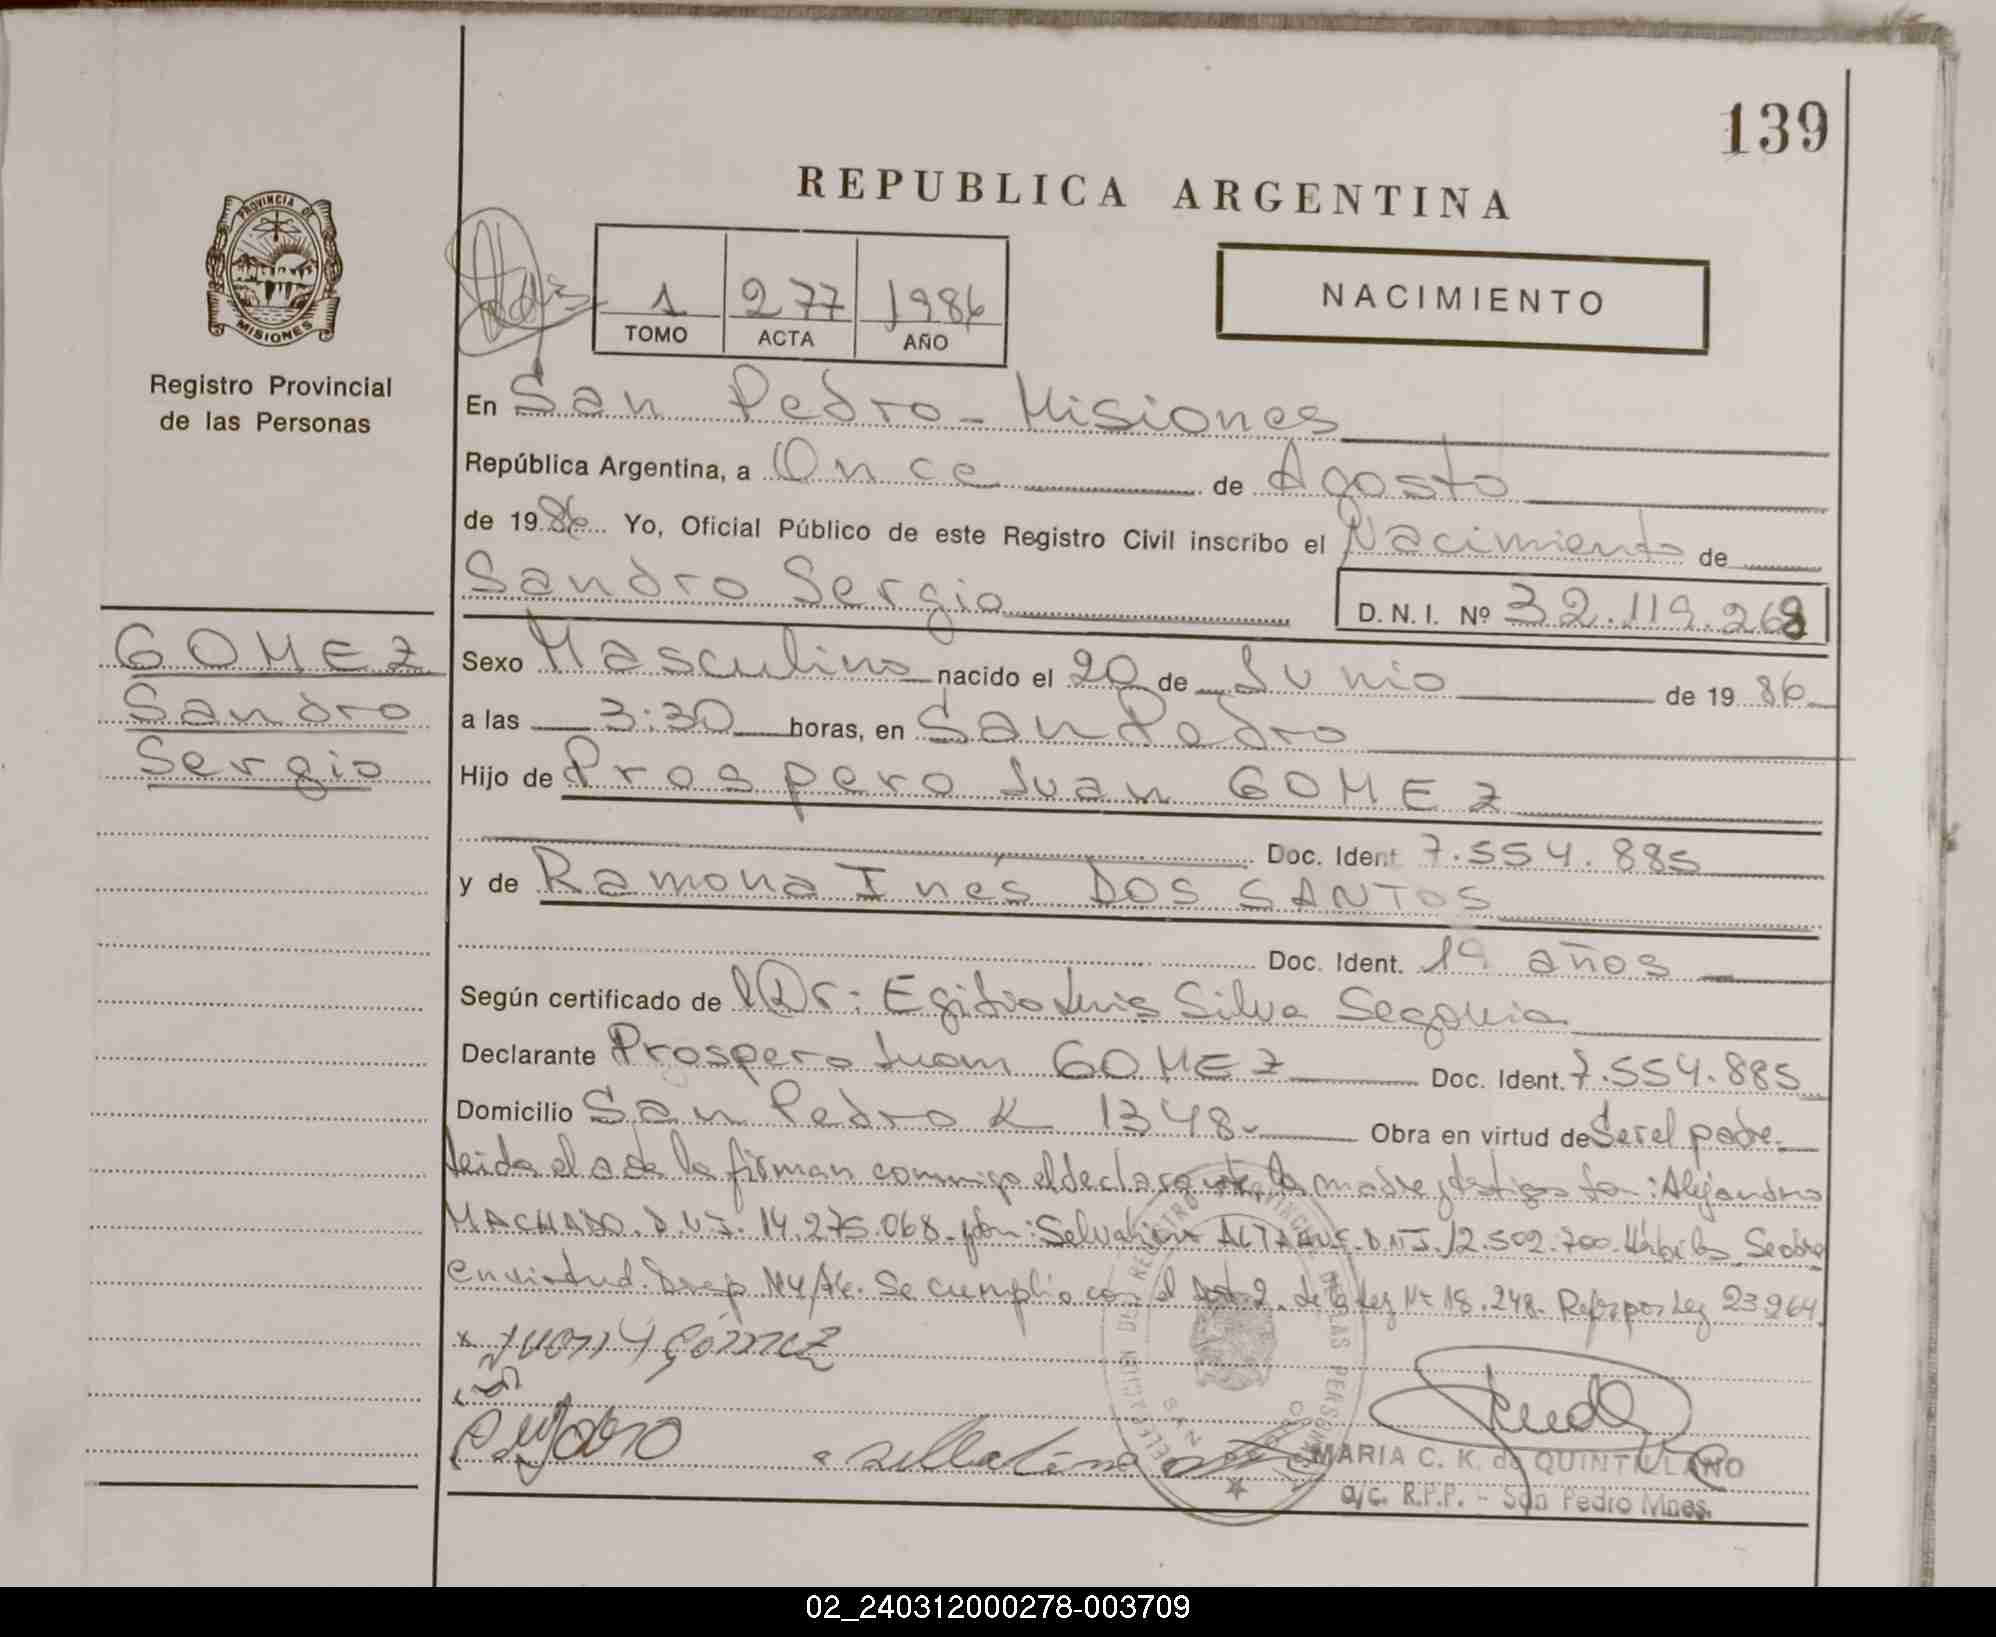 139
REPUBLICA ARGENTINA
PROVINCIA DE
MISIONES
Registro Provincial
de las Personas
1 277 1986
TOMO ACTA AÑO
NACIMIENTO
En San Pedro - Misiones
República Argentina, a Once de Agosto
de 1986 Yo, Oficial Público de este Registro Civil inscribo el Nacimiento de
Sandro Sergio D.N.I. Nº 32.119.268
GOMEZ
Sandro
Sergio
Sexo Masculino nacido el 20 de Junio de 1986
a las 3:30 horas, en San Pedro
Hijo de Prospero Juan GOMEZ
Doc. Ident 7.554.885
y de Ramona Inés DOS SANTOS
Doc. Ident. 19 años
Según certificado de l Dr: Egidio Luis Silva Segovia
Declarante Prospero Juan GOMEZ Doc. Ident. 7.554.885
Domicilio San Pedro K 1348.- Obra en virtud de Ser el padre.
leida el acta la firman conmigo el declarante, la madre y testigos Don: Alejandro
MACHADO. D.N.I. 14.275.068. y Don: D.N.I. 12.502.700. Hábiles Se obra
en virtud. Disp. Nº 4/86. Se cumplio con el Art. 2. de la Ley Nº 18.248. Ref. por Ley 23.264.
x Juan Gómez
MARIA C. K. de QUINTILLANO
a/c. R.P.P. - San Pedro Mnes.
02_240312000278-003709